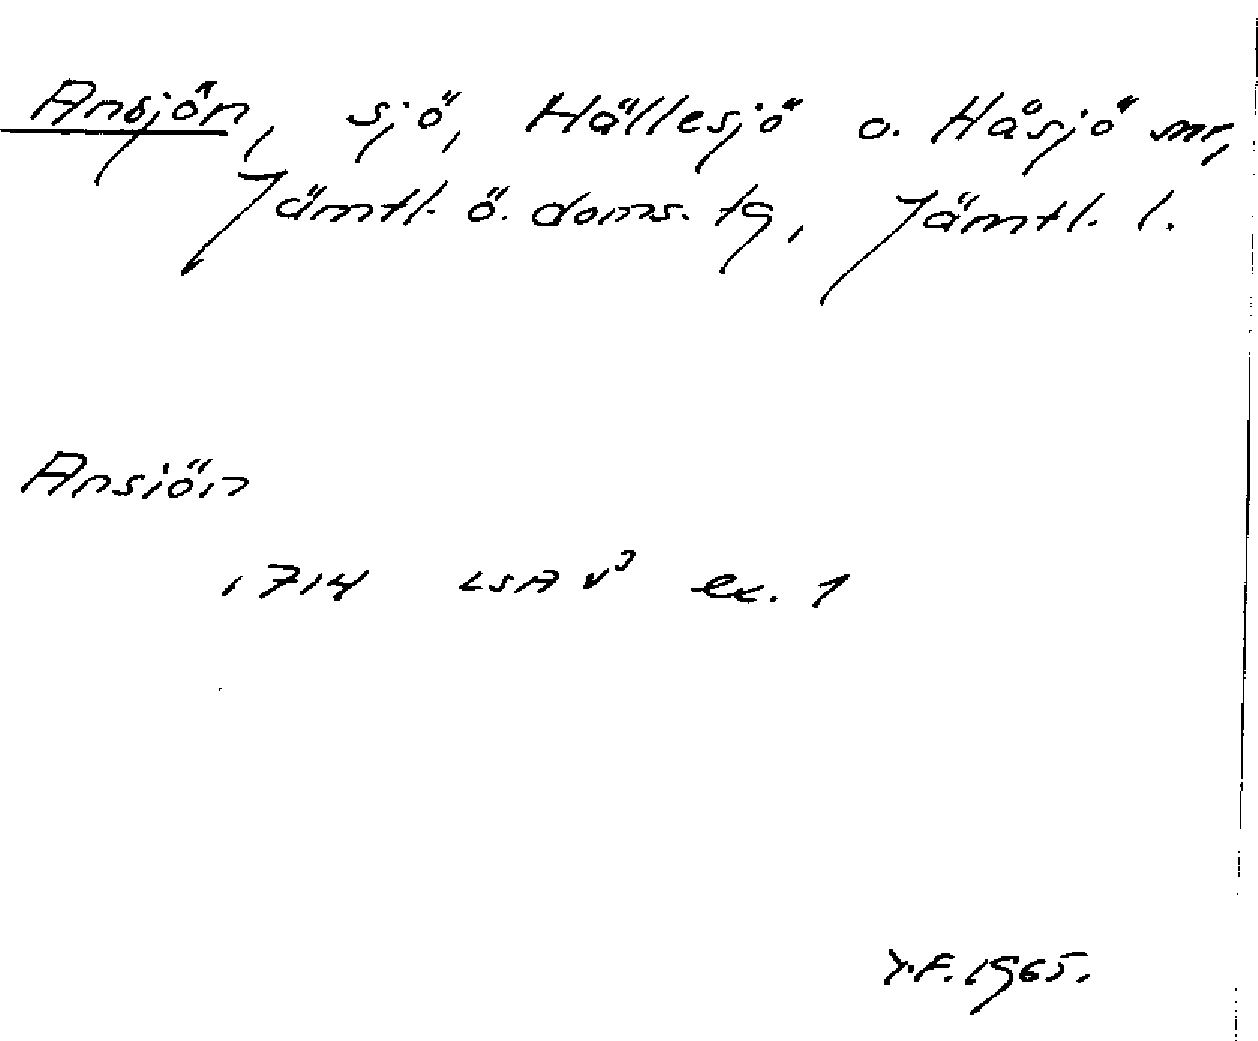 Ansjön, sjö, Hällesjö o. Håsjö snr,
Jämtl. ö. doms. tg, Jämtl. l.
Ansiön
1714 LSA V³ ex. 1
Y.F. 1965.